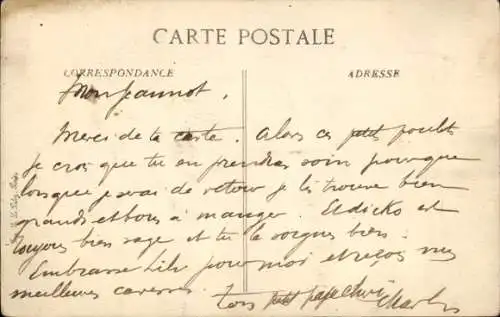 CARTE POSTALE
CORRESPONDANCE
ADRESSE
Mon Jeannot,
Merci de ta carte. Alors ces petits poulets
je crois que tu en prendras soin pour que
lorsque je serai de retour je les trouve bien
grands et bons à manger. Et dicko est
toujours bien sage et tu le soignes bien.
Embrasse Lili pour moi et reçois mes
meilleures caresses. Ton petit papa chéri
Charles